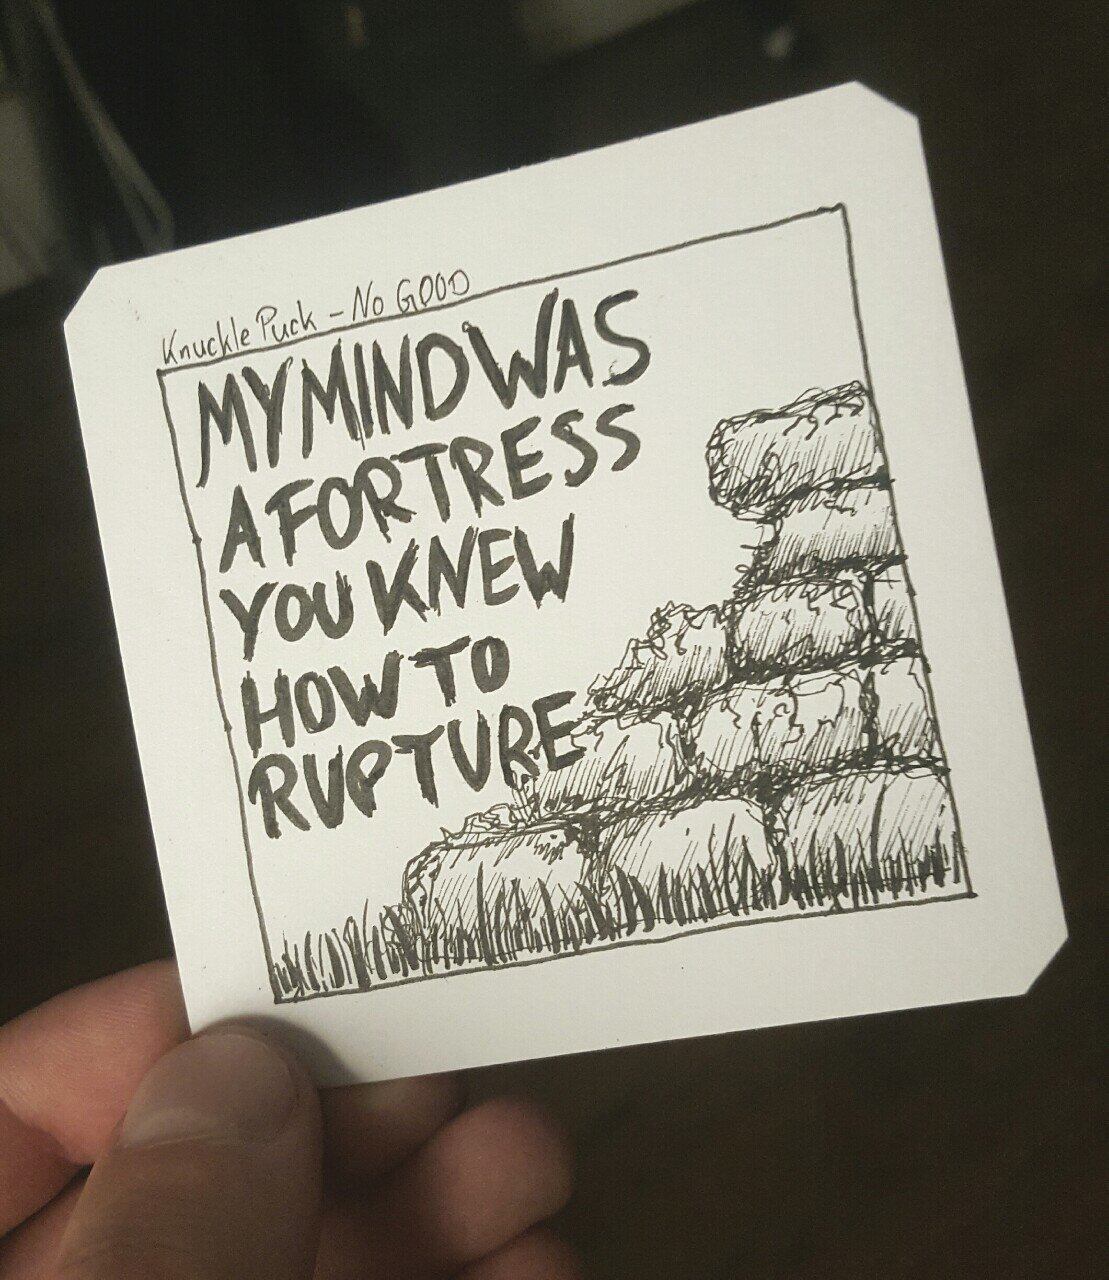 Knuckle Puck - No GOOD
MY MIND WAS
A FORTRESS
YOU KNEW
HOW TO
RUPTURE